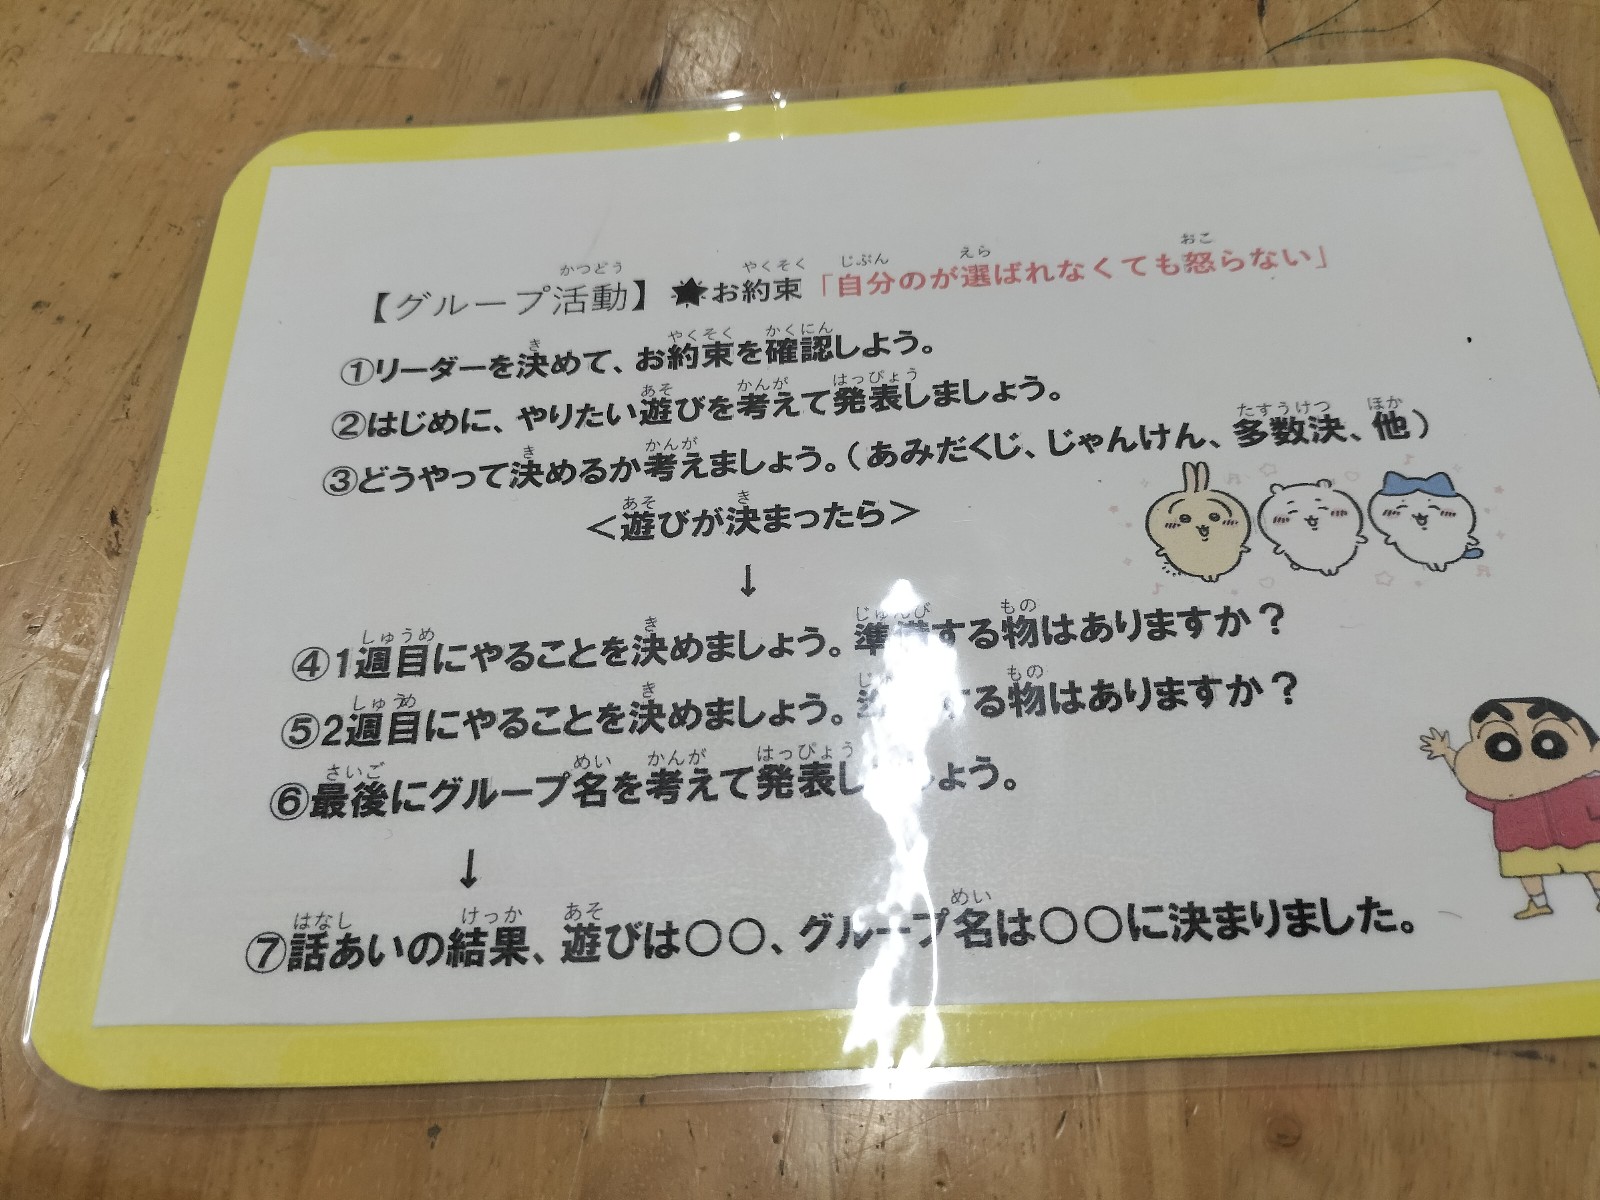 【グループ活動】 ★お約束「自分のが選ばれなくても怒らない」
①リーダーを決めて、お約束を確認しよう。
②はじめに、やりたい遊びを考えて発表しましょう。
③どうやって決めるか考えましょう。（あみだくじ、じゃんけん、多数決、他）
＜遊びが決まったら＞
↓
④1週目にやることを決めましょう。準備する物はありますか？
⑤2週目にやることを決めましょう。準 する物はありますか？
⑥最後にグループ名を考えて発表し ょう。
↓
⑦話あいの結果、遊びは〇〇、グループ名は〇〇に決まりました。